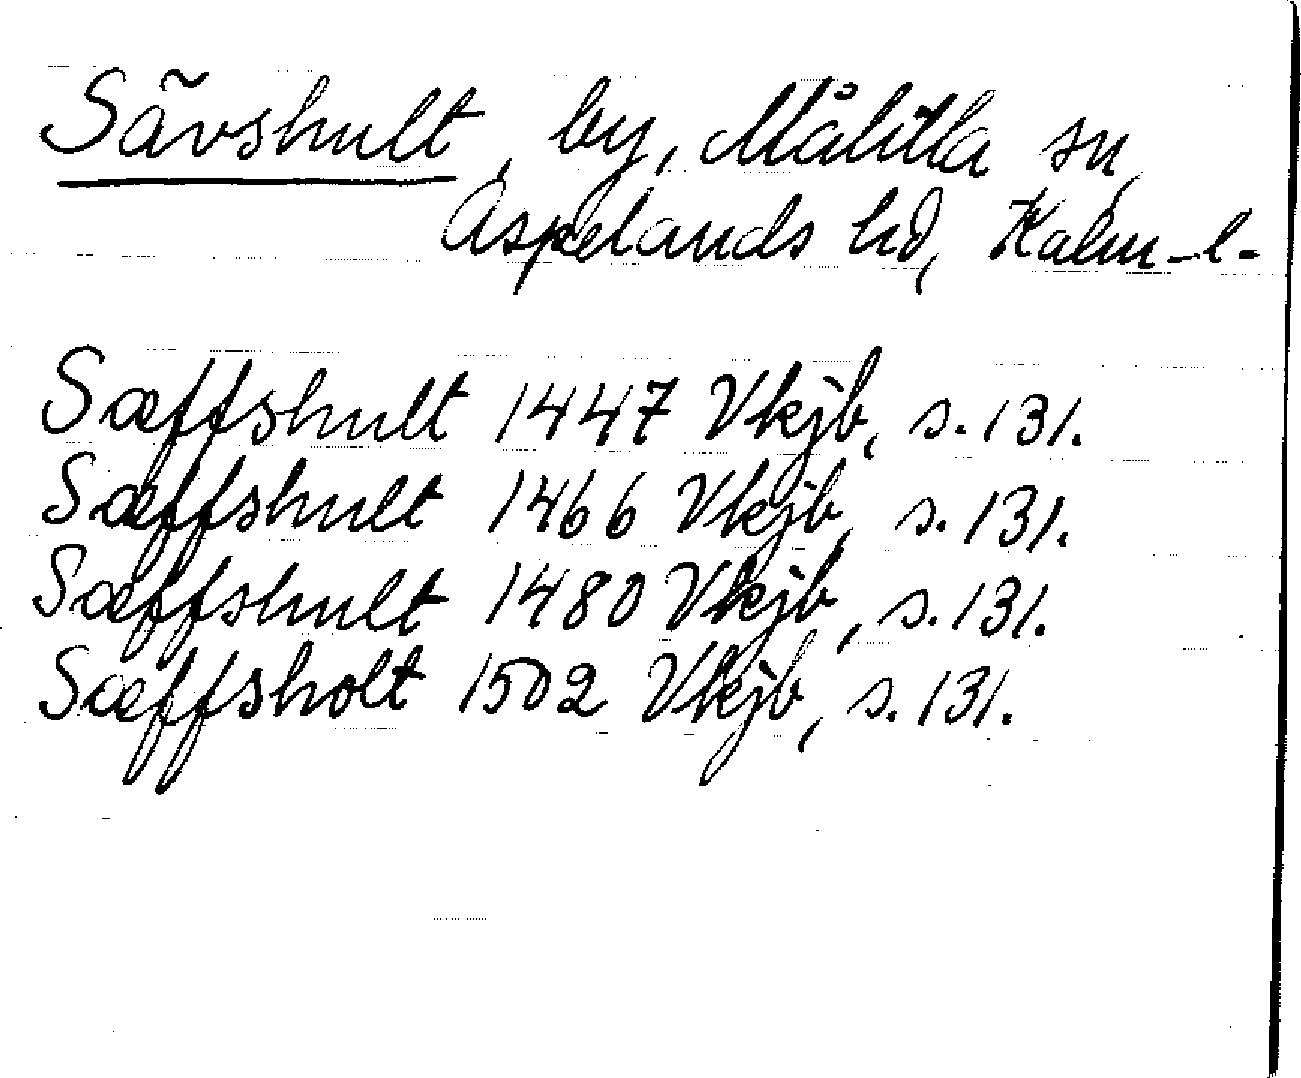 Sävshult, by, Målilla sn,
Aspelands hd, Kalm-l-
Sæffshult 1447 Vkjb, s. 131.
Sæffshult 1466 Vkjb, s. 131.
Sæffshult 1480 Vkjb, s. 131.
Sæffsholt 1502 Vkjb, s. 131.